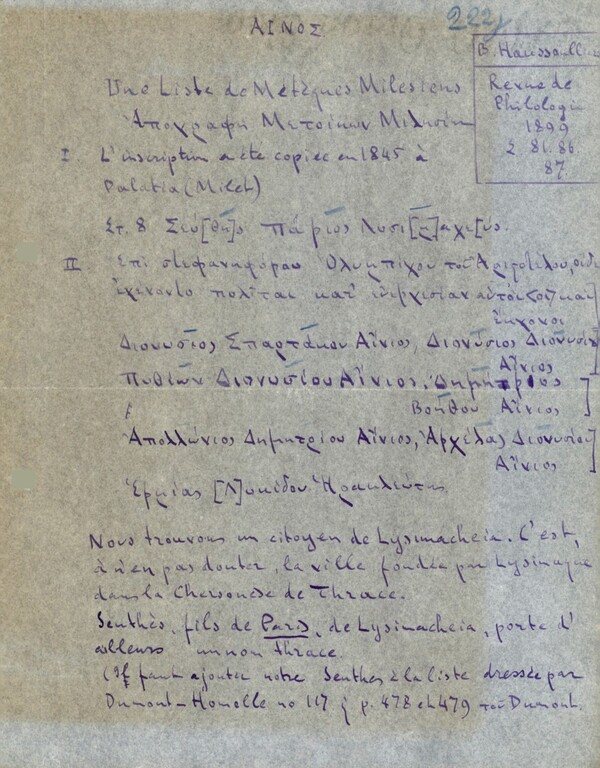 ΑΙΝΟΣ
222
B. Haussoullier
Revue de
Philologie
1899
Σ 81. 86
87
Une Liste de Métèques Milésiens
Ἀπογραφὴ Μετοίκων Μιλησίων
I L'inscription a été copiée en 1845 à
Palatia (Milet)
Στ. 8 Σεύ[θη]ς Πάριος Λυσι[μ]αχε[ύς.
II Ἐπὶ στεφανηφόρου Ὀλυμπίχου τοῦ Ἀριστοτέλου, οἵδε
ἐγένοντο πολῖται κατ' εὐεργεσίαν αὐτοὶ καὶ
ἔκγονοι
Διονύσιος Σπαρτάκου Αἴνιος, Διονύσιος Διονυσίου
Αἴνιος
Πυθίων Διονυσίου Αἴνιος, Δημήτριος
Βοήθου Αἴνιος
Ἀπολλώνιος Δημητρίου Αἴνιος, Ἀρχέλας Διονυσίου
Αἴνιος
Ἑρμίας [Λ]υκίδου Ἡρακλεώτης
Nous trouvons un citoyen de Lysimacheia. C'est,
à n'en pas douter, la ville fondée par Lysimaque
dans la Chersonèse de Thrace.
Seuthès, fils de Paris, de Lysimacheia, porte d'
ailleurs un nom thrace.
(Il faut ajouter notre Seuthes à la liste dressée par
Dumont-Homolle no 117 j p. 478 et 479 τοῦ Dumont.